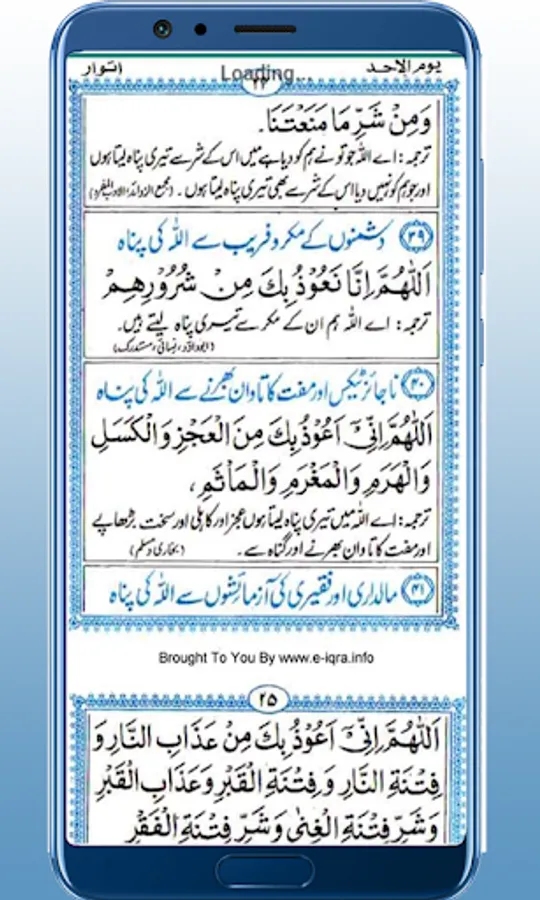 يوم الاحد اتوار
Loading...
۲۴
وَمِنْ شَرِّ مَا مَنَعْتَنَا۔
ترجمہ: اے اللہ جو تو نے ہم کو دیا ہے میں اس کے شر سے تیری پناہ لیتا ہوں
اور جو ہم کو نہیں دیا اس کے شر سے بھی تیری پناہ لیتا ہوں۔ (مجمع الزوائد، الادب المفرد)
۳۹ دشمنوں کے مکر و فریب سے اللہ کی پناہ
اَللّٰهُمَّ اِنَّا نَعُوْذُ بِكَ مِنْ شُرُوْرِهِمْ
ترجمہ: اے اللہ ہم ان کے مکر سے تیری پناہ لیتے ہیں۔
(ابوداؤد، نسائی، مستدرک)
۴۰ ناجائز ٹیکس اور مفت کا تاوان بھرنے سے اللہ کی پناہ
اَللّٰهُمَّ اِنِّيْ اَعُوْذُ بِكَ مِنَ الْعَجْزِ وَالْكَسَلِ
وَالْهَرَمِ وَالْمَغْرَمِ وَالْمَأْثَمِ،
ترجمہ: اے اللہ میں تیری پناہ لیتا ہوں عجز اور کاہلی اور سخت بڑھاپے
اور مفت کا تاوان بھرنے اور گناہ سے۔ (بخاری و مسلم)
۴۱ مالداری اور فقیری کی آزمائشوں سے اللہ کی پناہ
Brought To You By www.e-iqra.info
۲۵
اَللّٰهُمَّ اِنِّيْ اَعُوْذُ بِكَ مِنْ عَذَابِ النَّارِ وَ
فِتْنَةِ النَّارِ وَفِتْنَةِ الْقَبْرِ وَعَذَابِ الْقَبْرِ
وَشَرِّ فِتْنَةِ الْغِنٰى وَشَرِّ فِتْنَةِ الْفَقْرِ